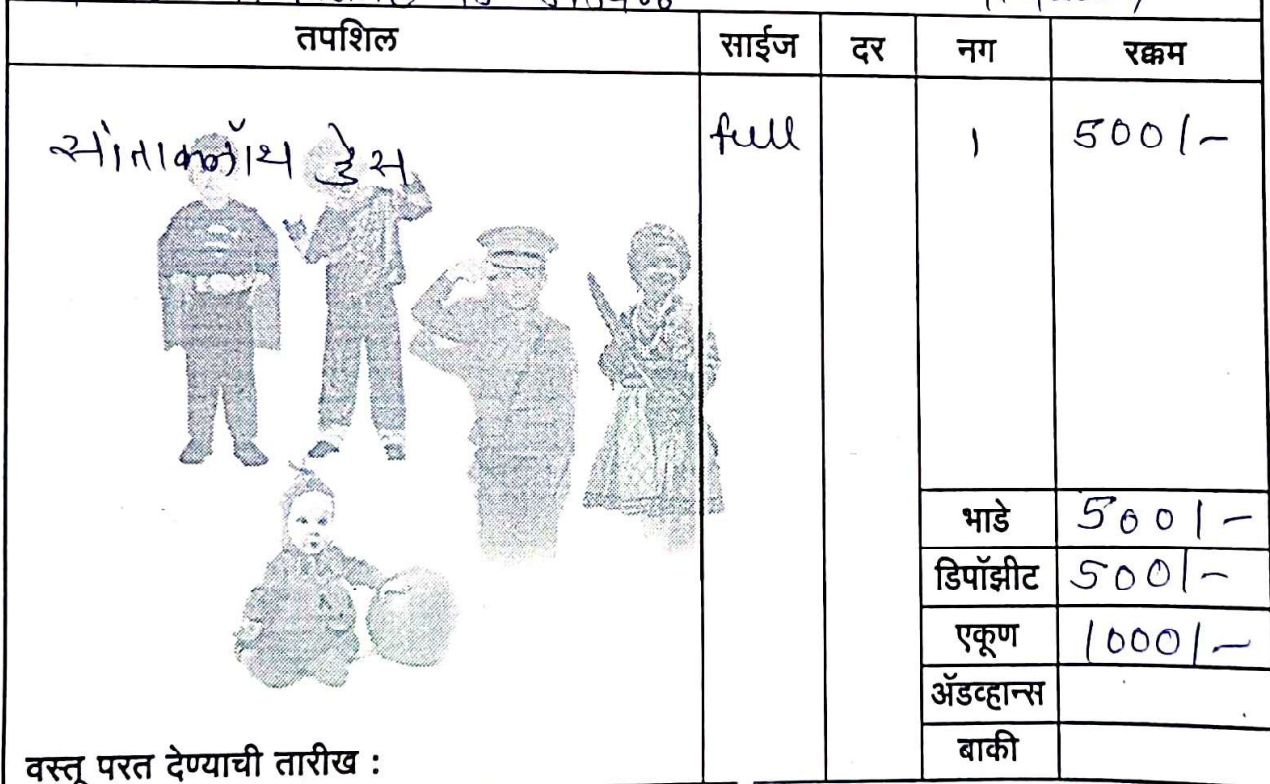 तपशिल साईज दर नग रक्कम
सांताक्लॉथ ड्रेस full 1 500/-
भाडे 500/-
डिपॉझीट 500/-
एकूण 1000/-
ॲडव्हान्स
बाकी
वस्तू परत देण्याची तारीख :